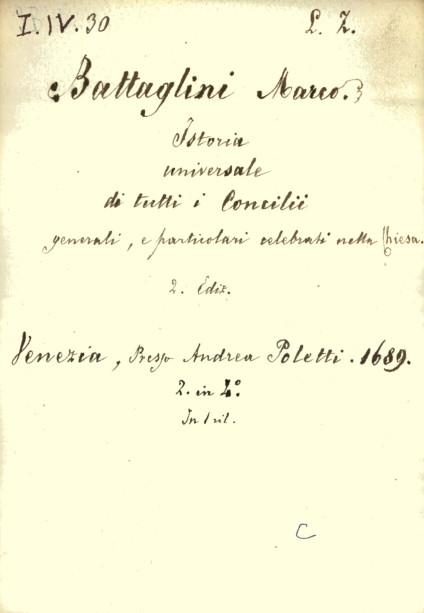 I. IV. 30 L. Z.
Battaglini Marco.
Istoria
universale
di tutti i Concilii
generali, e particolari celebrati nella Chiesa.
2. Ediz.
Venezia, Presso Andrea Poletti. 1689.
2. in 4°.
In 1 vil.
C